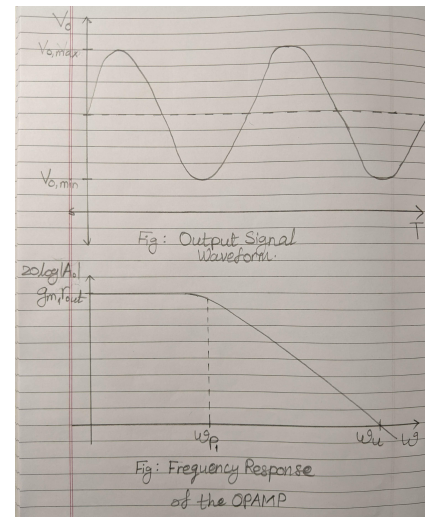 V₀
V₀,max
V₀,min
T
Fig: Output Signal
Waveform.
20log|A₀|
gm₁rout
ωp₁
ωu
ω
Fig: Frequency Response
of the OPAMP